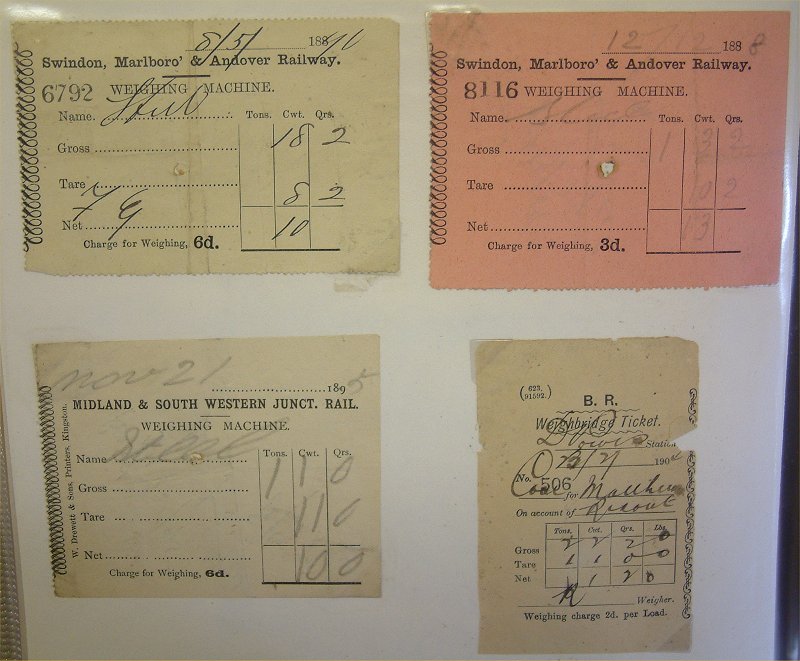 8/5/ 188
Swindon, Marlboro' & Andover Railway.
6792 WEIGHING MACHINE.
Name. Tons. Cwt. Qrs.
Gross 18 2
Tare 8 2
Net 10
Charge for Weighing, 6d.
12 188 8
Swindon, Marlboro' & Andover Railway.
8116 WEIGHING MACHINE.
Name. Tons. Cwt. Qrs.
Gross 1 3
Tare 10 2
Net 13
Charge for Weighing, 3d.
Nov 21 1895
MIDLAND & SOUTH WESTERN JUNCT. RAIL.
WEIGHING MACHINE.
Name Tons. Cwt. Qrs.
Gross 1 1 0
Tare 11 0
Net 10 0
Charge for Weighing, 6d.
W. Drewett & Sons, Printers, Kingston.
(623, 91592.)
B. R.
Weighbridge Ticket.
Station
190
No. 506 Coal for Matthews
On account of
Tons. Cwt. Qrs. Lbs.
Gross 2 2 2 0
Tare 1 1 0 0
Net 1 1 2 0
Weigher.
Weighing charge 2d. per Load.